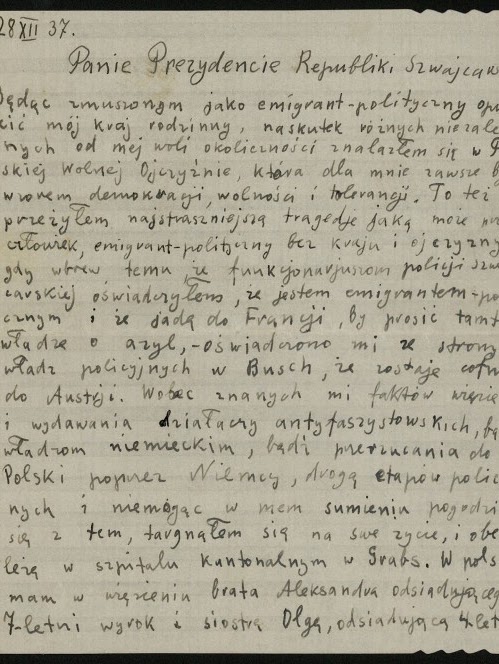 28 XII 37.
Panie Prezydencie Republiki Szwajcar
Będąc zmuszonym jako emigrant-polityczny opu
cić mój kraj rodzinny, naskutek różnych niezale
nych od mej woli okoliczności znalazłem się w
skiej Wolnej Ojczyźnie, która dla mnie zawsze b
wzorem demokracji, wolności i tolerancji. To też
przeżyłem najstraszniejszą tragedję jaką może prz
człowiek, emigrant-polityczny bez kraju i ojczyzny
gdy wbrew temu, że funkcjonarjuszom policji szw
carskiej oświadczyłem, że jestem emigrantem-po
cznym i że jadę do Francji, by prosić tamt
władze o azyl,-oświadczono mi ze strony
władz policyjnych w Busch, że zostaję cofn
do Austrji. Wobec znanych mi faktów więzie
i wydawania działaczy antyfaszystowskich, bą
władzom niemieckim, bądź przerzucania do
Polski poprzez Niemcy, drogą etapów polic
nych i niemogąc w mem sumieniu pogodzi
się z tem, targnąłem się na swe życie, i obe
leżę w szpitalu kantonalnym w Grabs. W pols
mam w więzieniu brata Aleksandra odsiadującego
7-letni wyrok i siostrę Olgę, odsiadującą 4-let